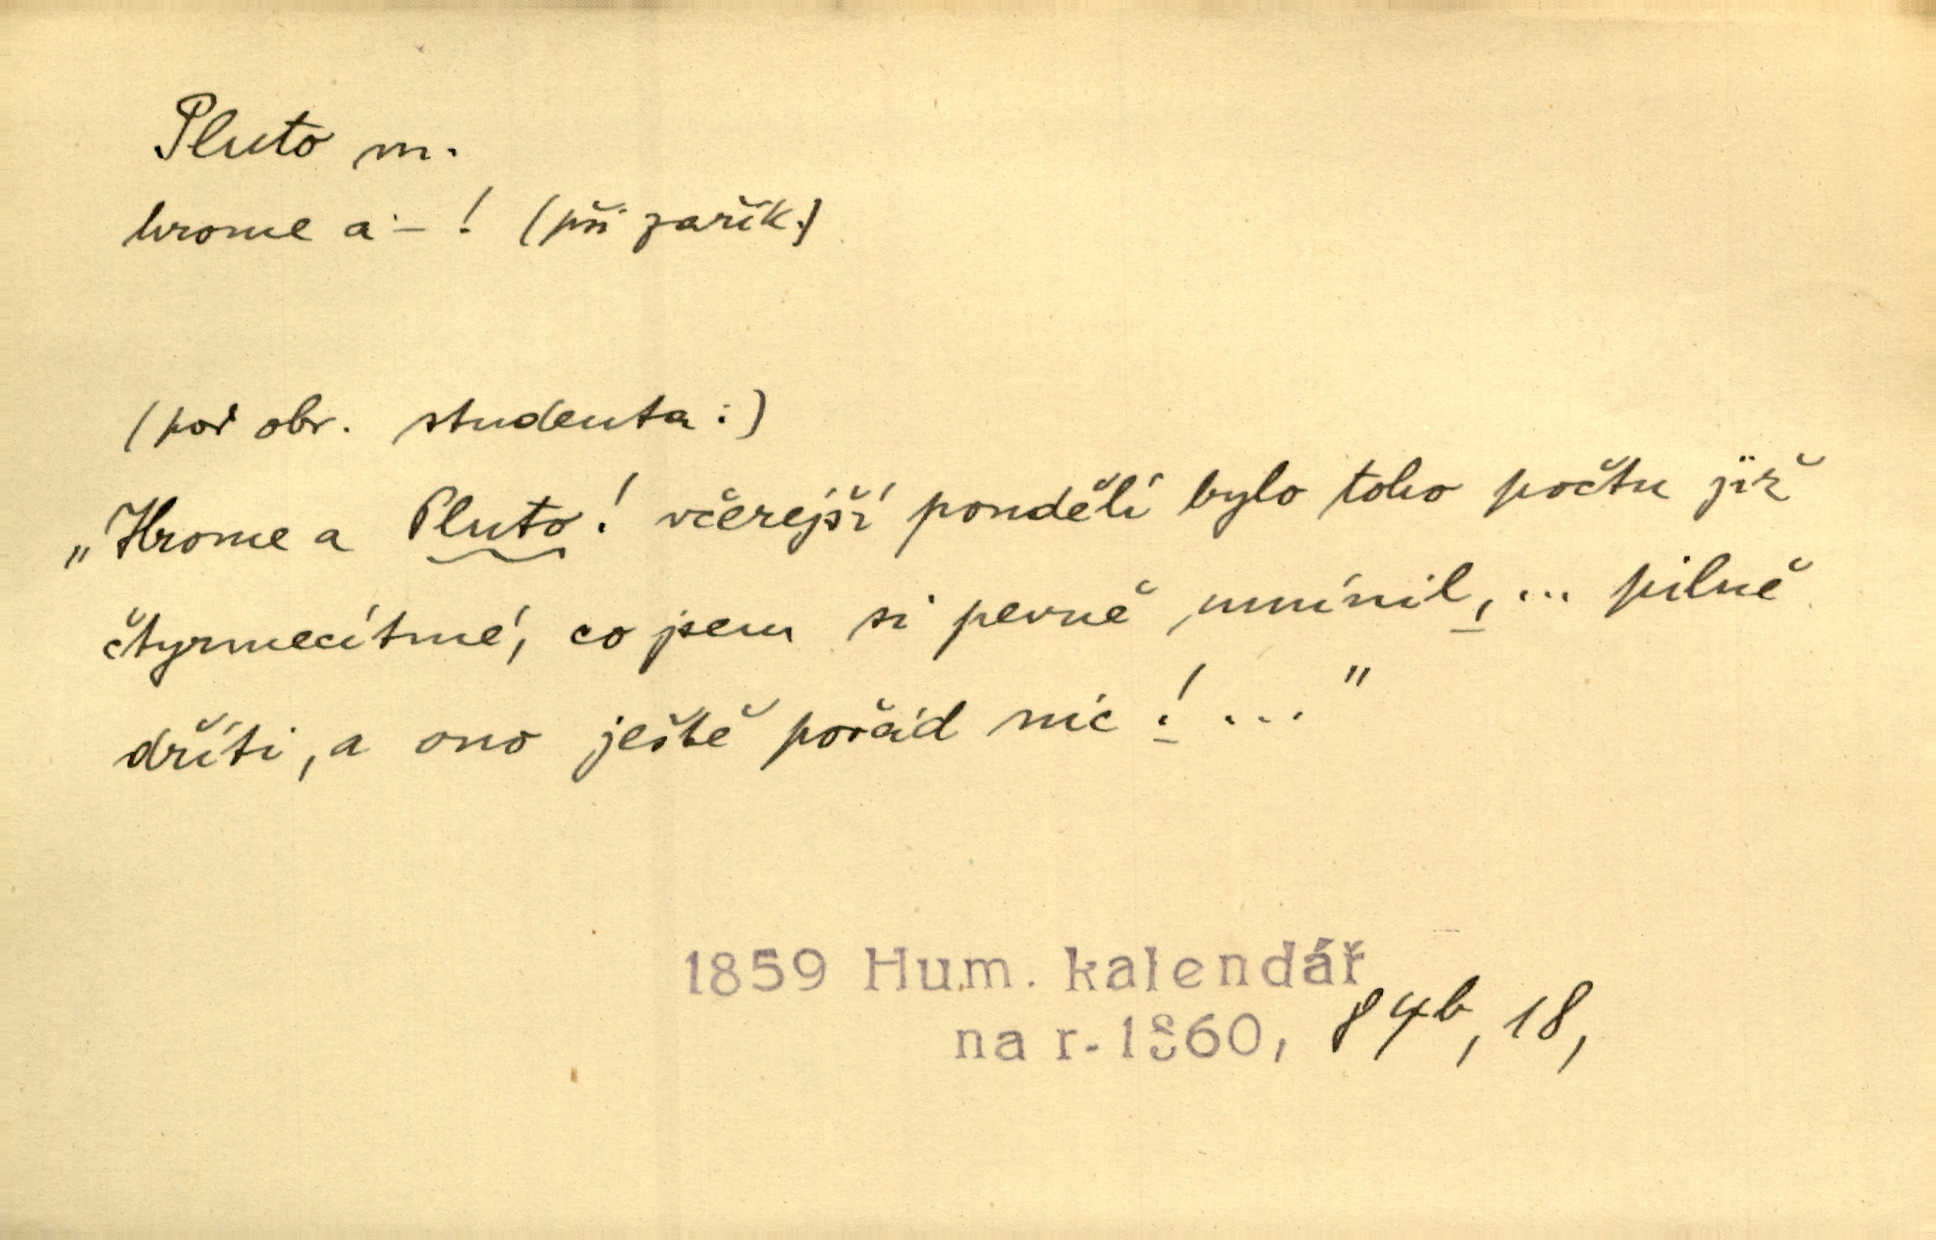 Pluto m.
hrome a – ! (při zařík.)
(pod obr. studenta:)
„Hrome a Pluto! včerejší pondělí bylo toho počtu již
čtyrmecítmé, co jsem si pevně umínil, ... pilně
dříti, a ono ještě pořád nic! ..."
1859 Hum. kalendář
na r. 1860, 84b, 18,